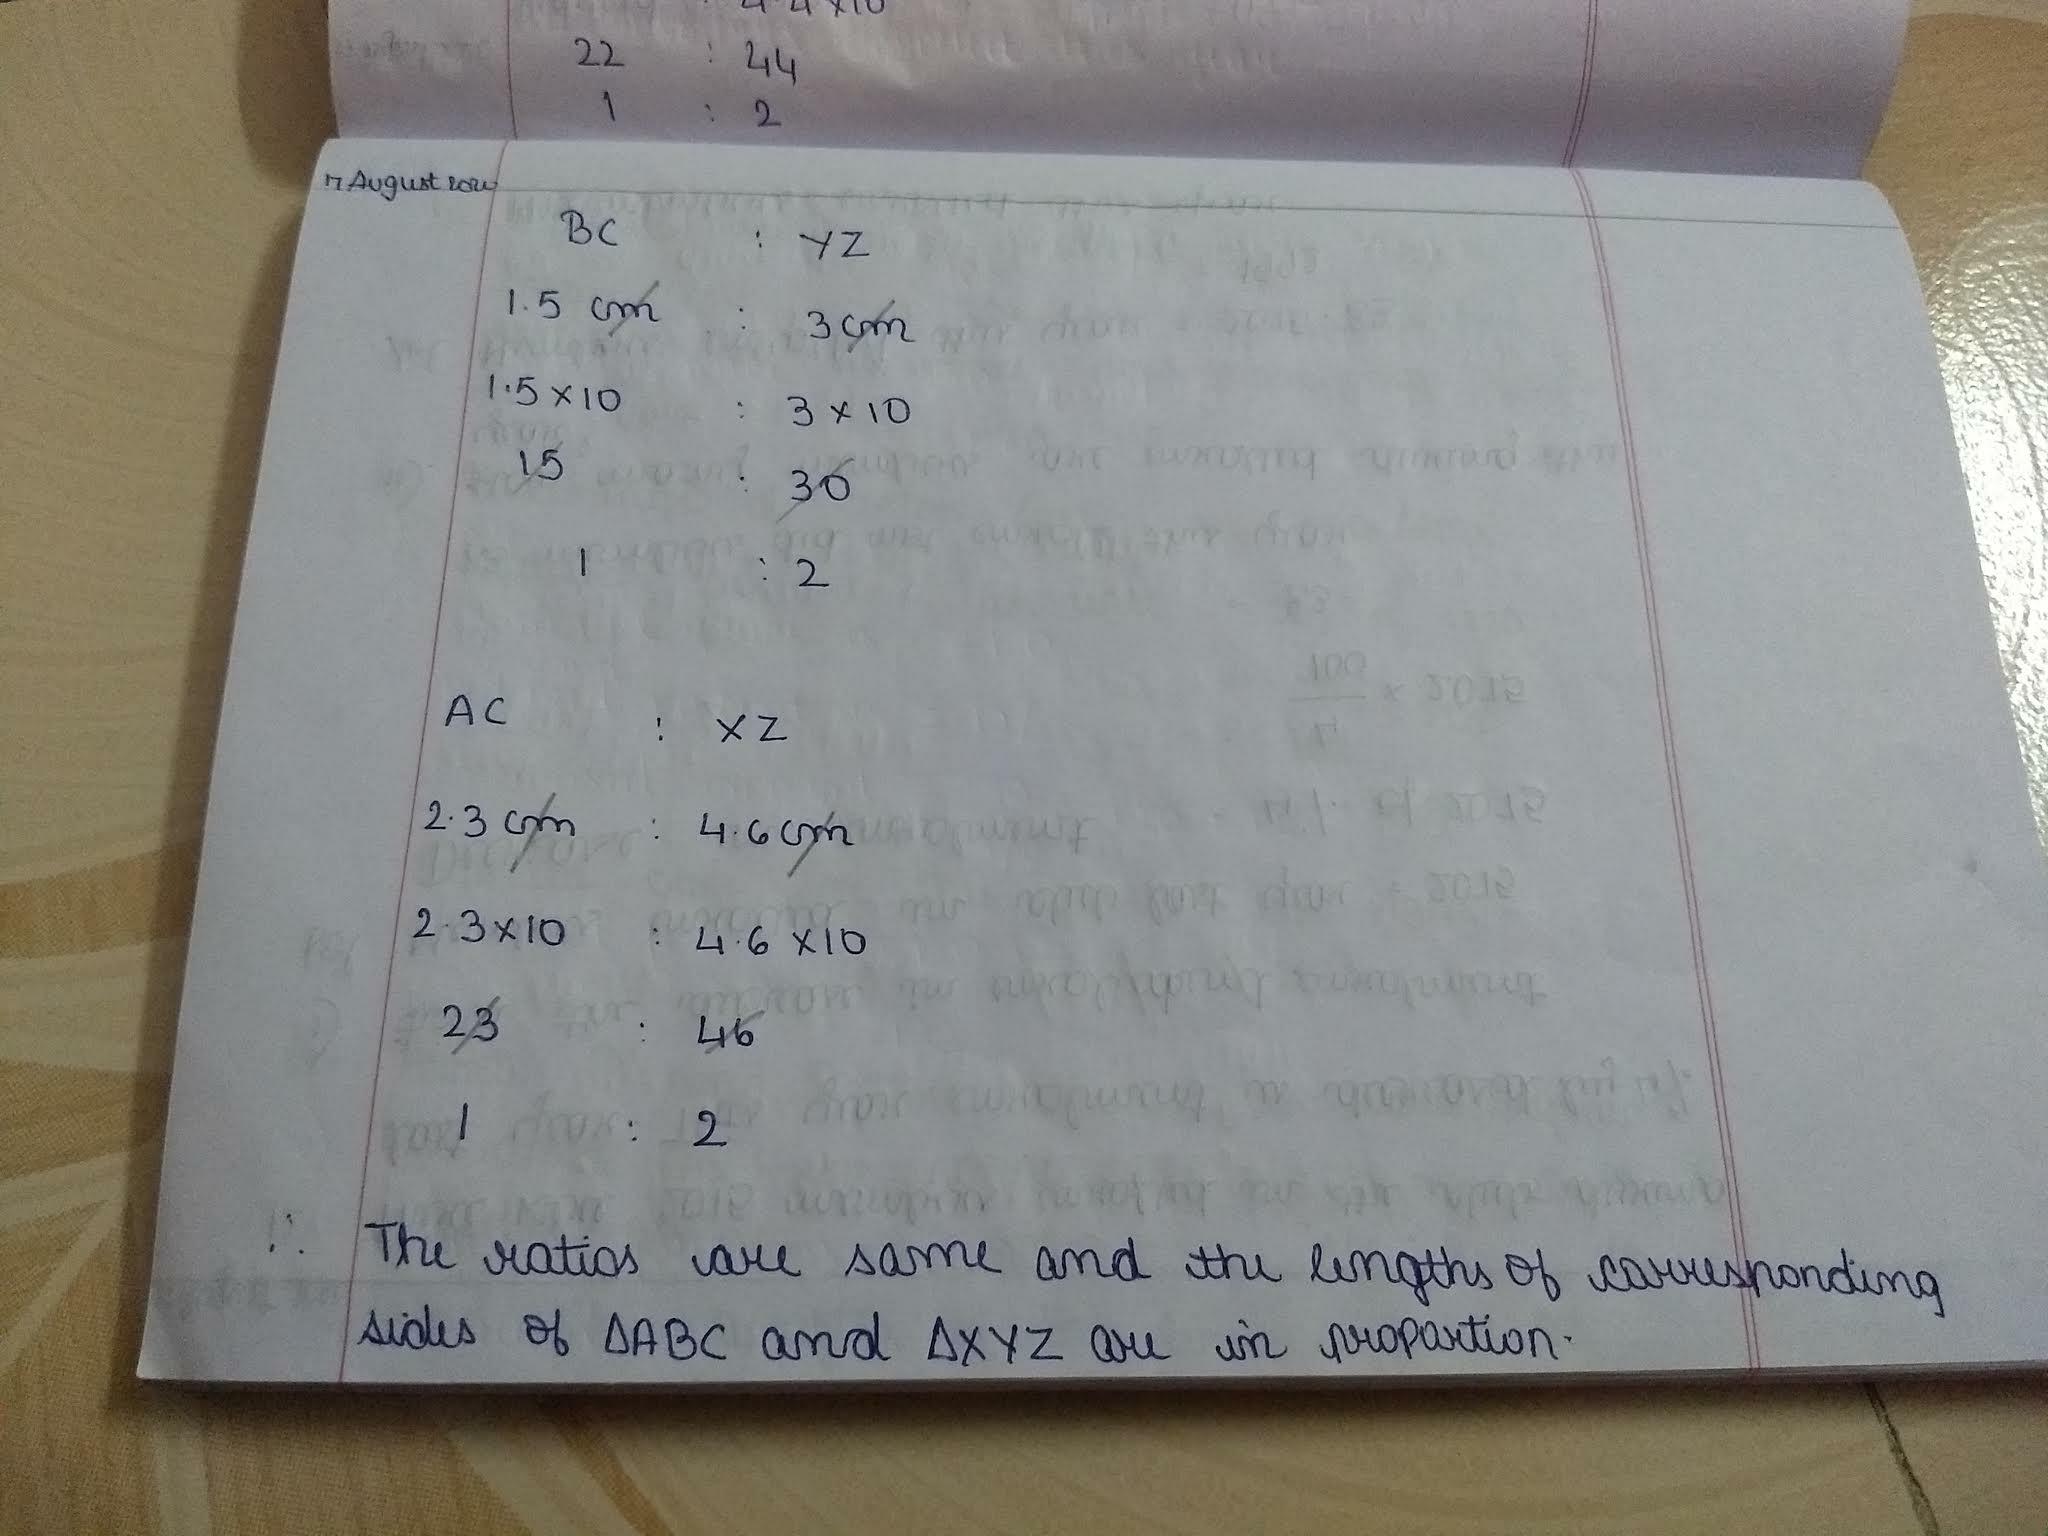 : 4.4×10
22 : 44
1 : 2
17 August 2020
BC : YZ
1.5 cm : 3 cm
1.5×10 : 3×10
15 : 30
1 : 2
AC : XZ
2.3 cm : 4.6 cm
2.3×10 : 4.6×10
23 : 46
1 : 2
∴ The ratios are same and the lengths of corresponding
sides of ΔABC and ΔXYZ are in proportion.